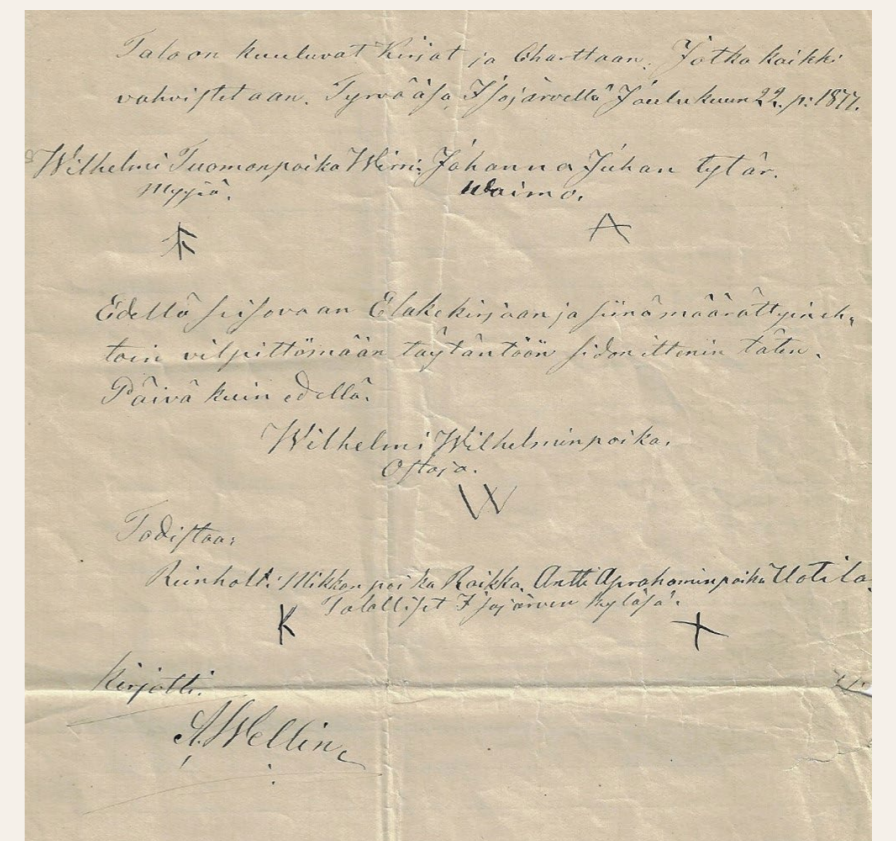 Taloon kuuluvat Kirjat ja Charttaan. Jotka kaikki
vahvistetaan. Tyrväässä, Isojärvellä Joulukuun 22. p: 1877.
Wilhelmi Tuomonpoika Wirri; Johanna Juhan tytär.
Myyjä. Waimo.
K A
Edellä seisovaan Eläkekirjaan ja siinä määrättyin eh-
toin vilpittömään täytäntöön sidon ittenin täten.
Päivä kuin edellä.
Wilhelmi Wilhelminpoika.
Ostaja.
W
Todistaa:
Reinholt: Mikkon poika Raikka. Antti Aprahaminpoika Uotila.
Talolliset Isojärven kylässä.
K X
Kirjotti.
A. Wellin